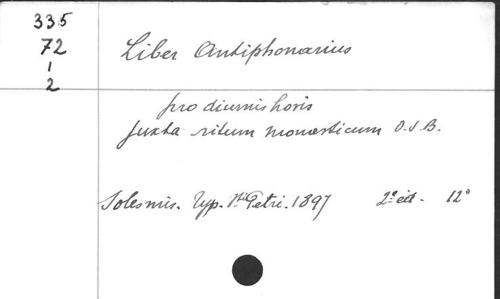 335
72
1
2
Liber Antiphonarius
pro diurnis horis
juxta ritum monasticum O.S.B.
Solesmis. Typ. Sti Petri. 1897 2ª éd. 12º